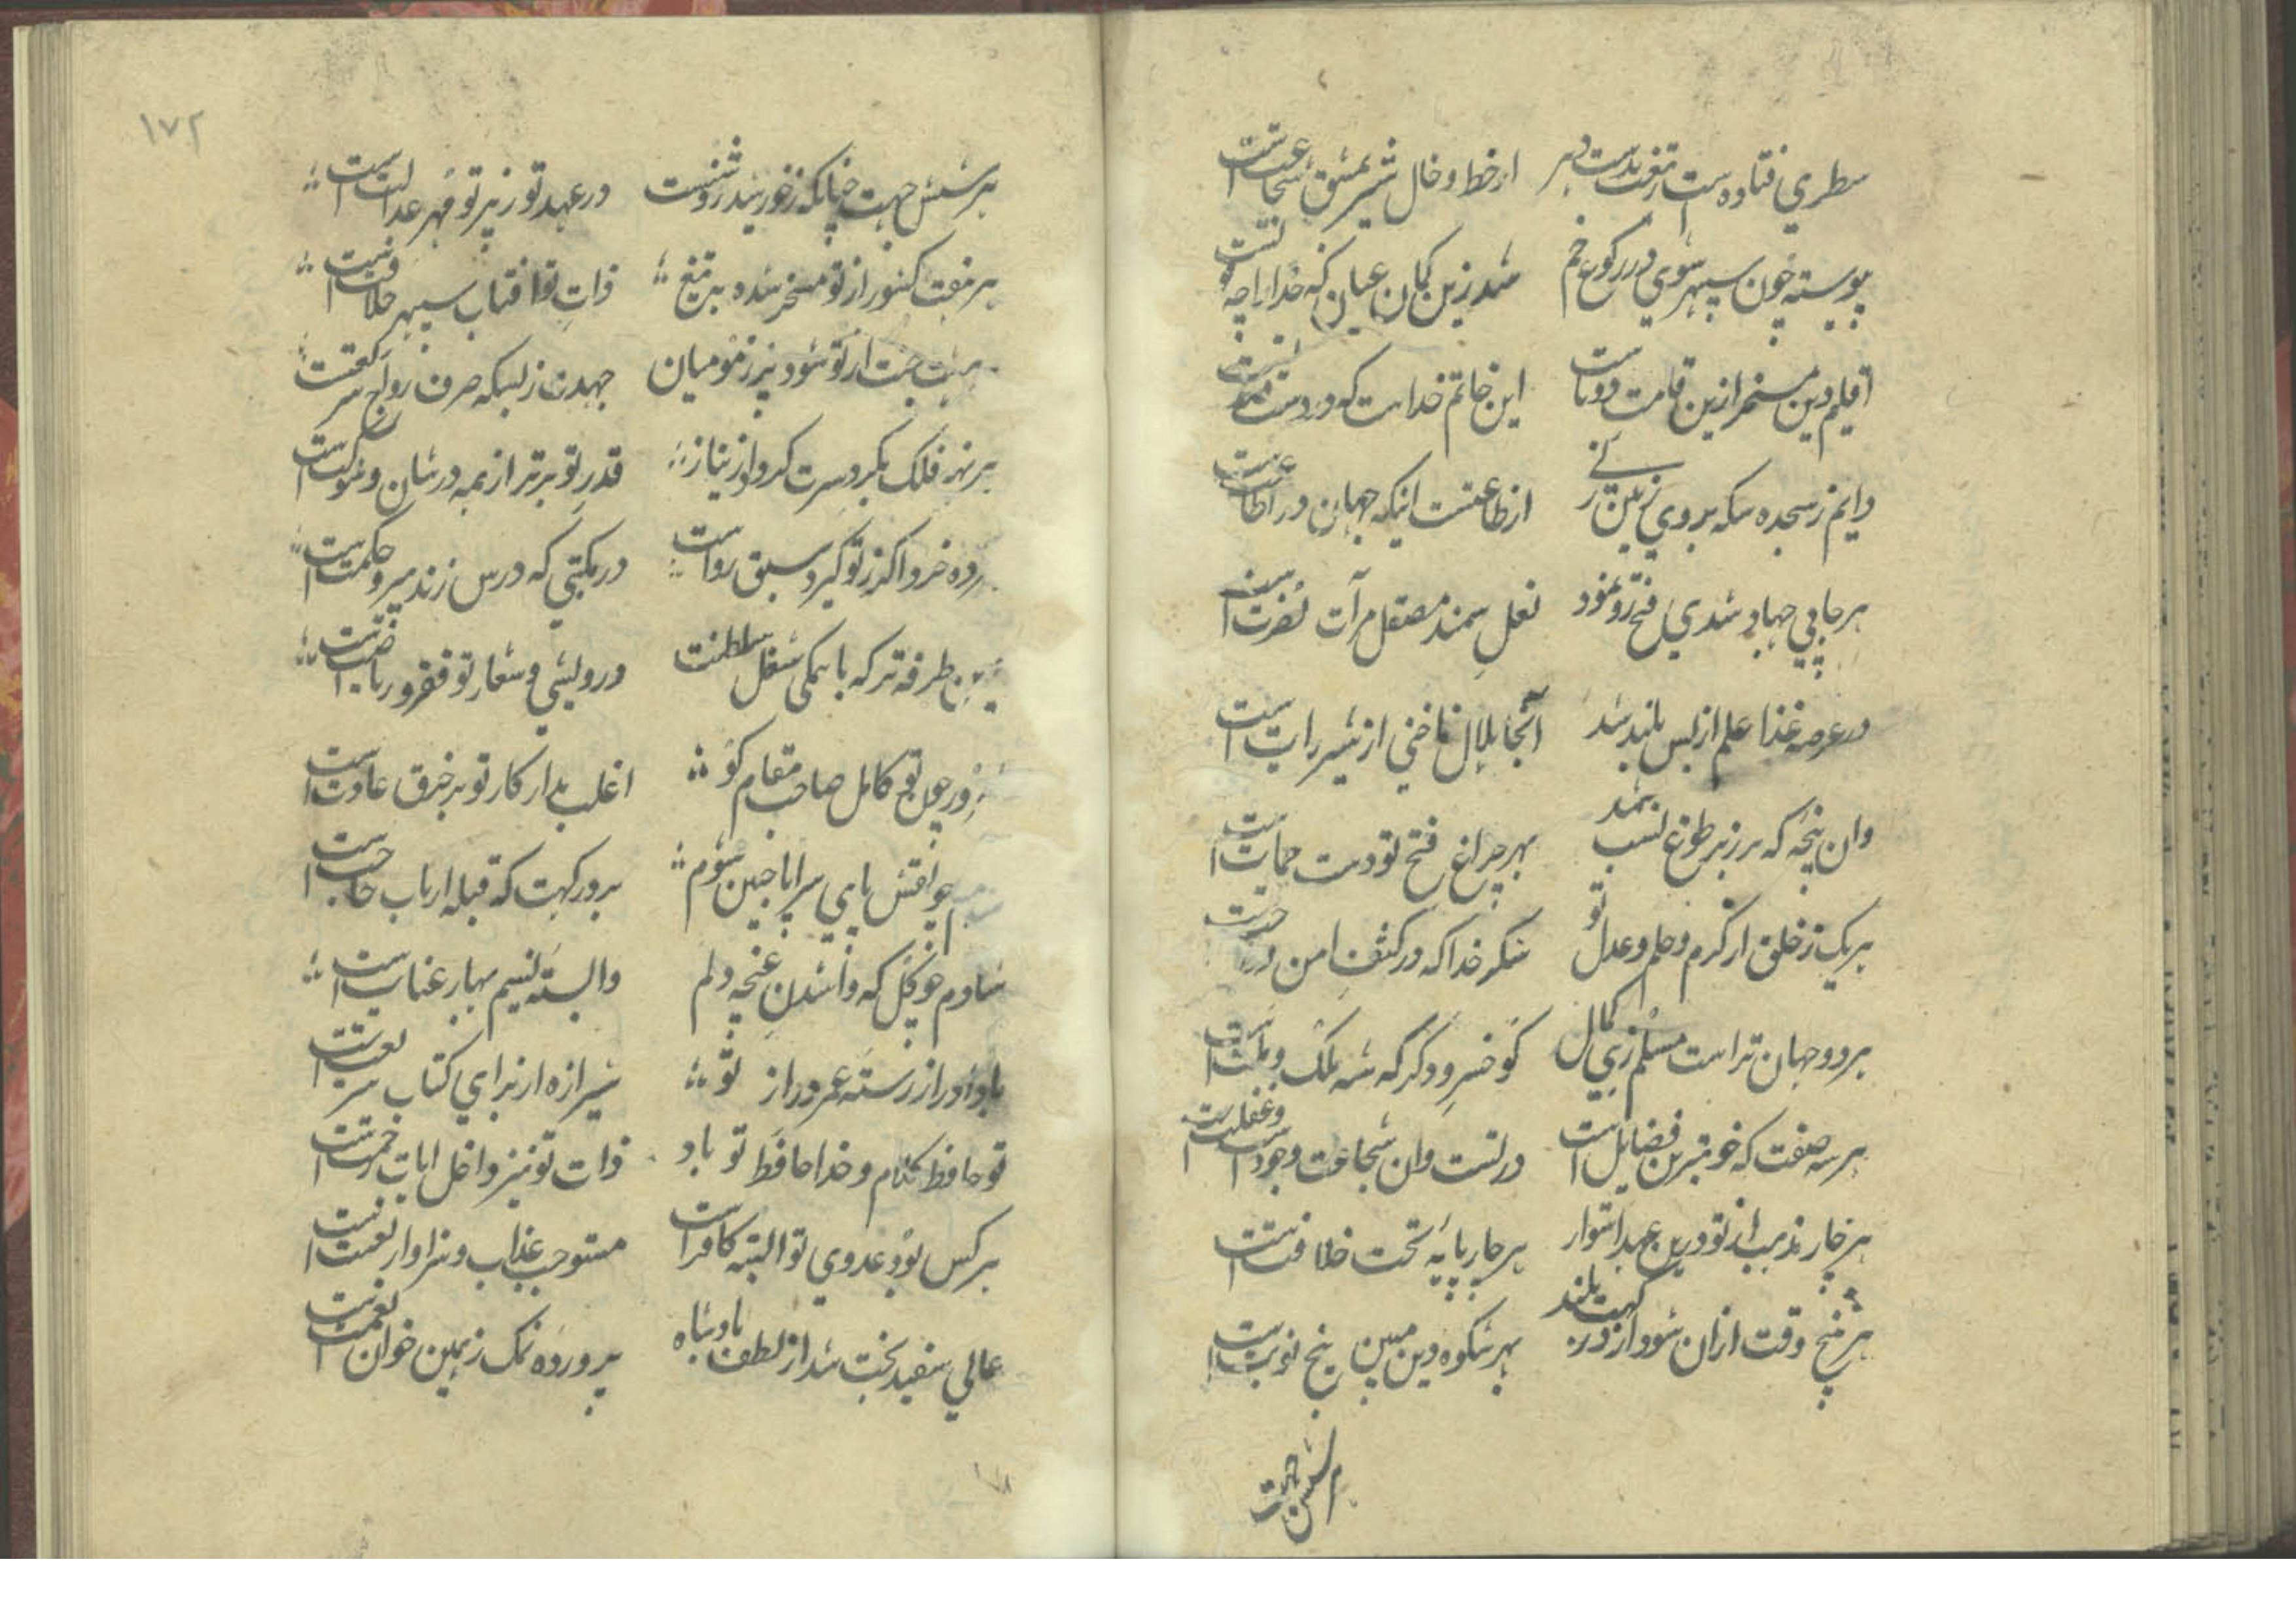 سطري فتاده است ز تیغت بدست دهر از خط و خال شیر بمشق شجاعت است
پیوسته چون سپهر شوي در رکوع خم شد زین کمان عیان که خدا را چه
اقلیم دین مسخر ازین قامت دوتاست این خاتم خداست که در دست
دایم ز سجده سکه بروي زمین زنے از طاعتست اینکه جهان در اطاعت است
هر جا پي جهاد شدي فتح رو نمود نعل سمند مصقل مرآت نصرت است
در عرصه غذا علم از بس بلند شد آنجا هلال ناخني از شیر رایت است
وان پنجه که بر زبر طوغ نسب شد بهر چراغ فتح تو دست حمایت است
هر یک ز خلق از کرم و حلم و عدل تو شکر خدا که در کنف امن در
هر دو جهان تراست مسلم ز بي کمال کو خسرو دگر که شه ملک و ملت است
هر سه صفت که خوبترین فضایل است در تست وان شجاعت وجود است و عفلت است
هر چار مذهب از تو درین عهد استوار هر چار پایه تخت خلافت است
هر پنج وقت ازان شود آواز در کهت بلند بهر شکوه دین مبین پنج نوبت است
هر شش جهت
۱۷۲
هر شش جهت چنانکه ز خورشید روشنست در عهد تو ز پرتو مهر عدالت است
هر هفت کشور از تو مسخر شده به تیغ ذات تو آفتاب سپهر خلافت است
هر هشت جنت از تو شود پر ز مؤمنان جهدت ز بسکه صرف رواج شریعت است
هر نه فلک بگرد سرت گردد از نیاز قدر تو برتر از همه در شان و شوکت است
ده خرد اگر ز تو گیرد سبق رواست در مکتبي که درس زند پیر و حکمت است
زین طرفه تر که با همگی شغل سلطنت درویشي و شعار تو فقر و ریاضت است
چون تو کامل صاحب مقام کو اغلب مدار کار تو بر خرق عادت است
چو نقش پاي سراپا جبین شوم بر درگهت که قبله ارباب حاجت است
شادم چو گل که وا شدن غنچه دلم وابسته نسیم بهار عنایت است
بادا دراز رسته عمر دراز تو شیرازه از براي کتاب شریعت است
تو حافظ کلام و خدا حافظ تو باد ذات تو نیز داخل ایات خمست است
هر کس بود عدوي تو البته کافر است مستوجب عذاب و سزاوار لعنت است
عالي سفید بخت شد از لطف پادشاه پرورده نمک ز همین خوان نعمت است